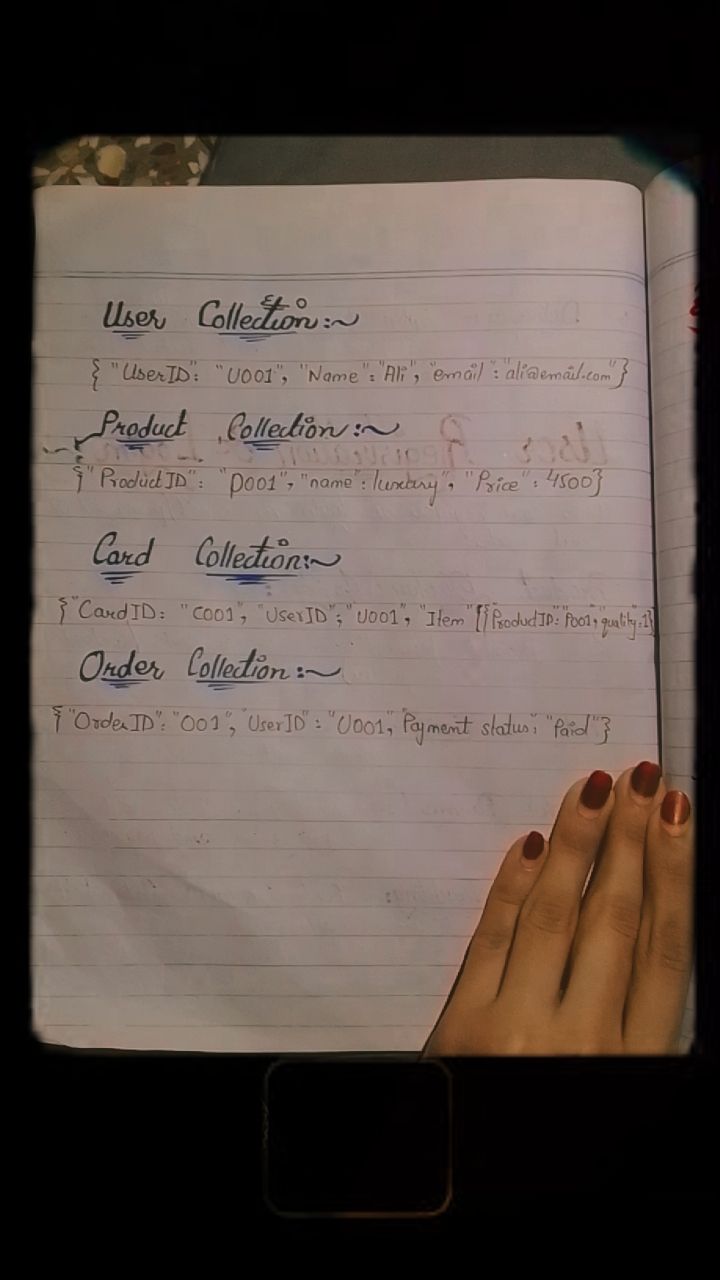 User Collection:~
{ "UserID": "U001", "Name": "Ali", "email": "ali@email.com" }
Product Collection:~
{"ProductID": "P001", "name": luxury", "Price": 4500}
Card Collection:~
{"CardID: "C001", "UserID": "U001", "Item"[{ProductID: "P001, quality:1}
Order Collection:~
{"OrderID": "O01", UserID": "U001, Payment status: "Paid"}